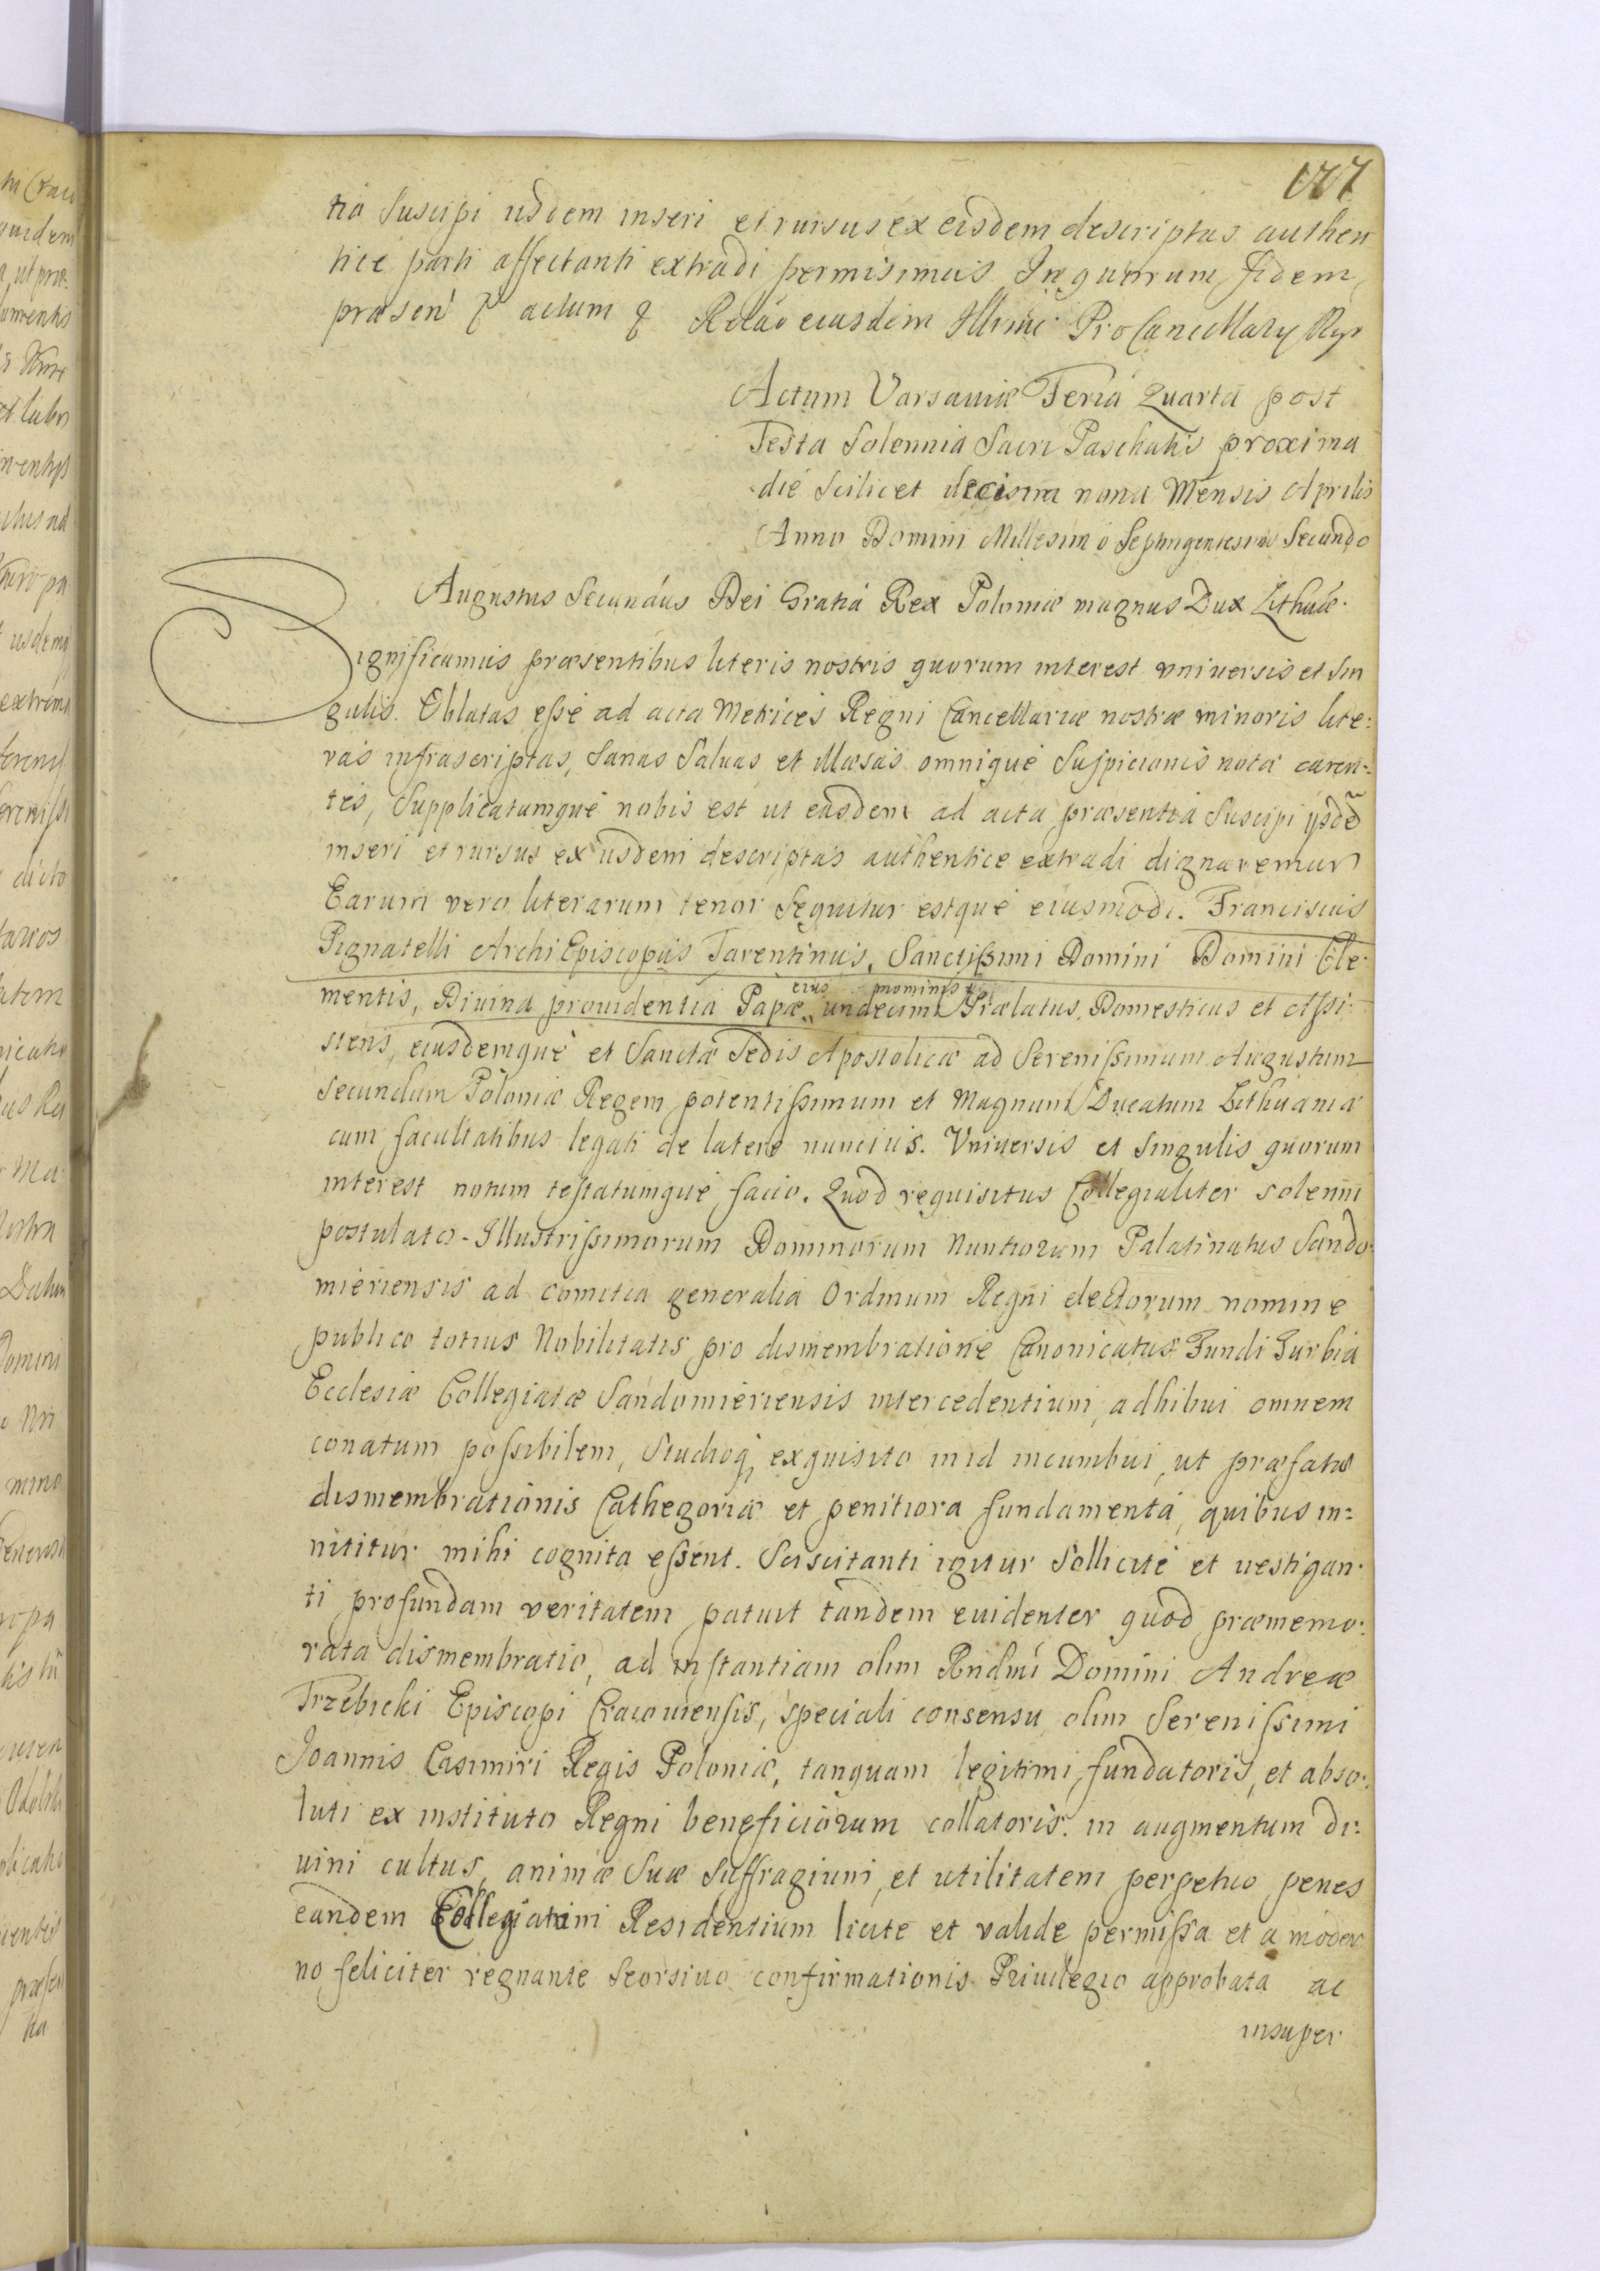 177
tia suscipi iisdem inseri et rursus ex eisdem descriptas authen
tice parti affectanti extradi permisimus In quarum fidem
præsen̄ actum Relāo eiusdem Illrimi ProCancellarÿ Rgn
Actum Varsaviæ Feria Quarta post
Festa Solennia Sacri Paschatis proxima
die Scilicet decima nona Mensis Aprilis
Anno Domini Millesimo Septingentesimo Secundo
Augustus Secundus Dei Gratiá Rex Poloniæ magnus Dux Lithuae.
Significamus præsentibus literis nostris quorum interest vniuersis et Sin
gulis. Oblatas esse ad acta Metrices Regni Cancellariæ nostræ minoris lite:
ras infrascriptas, Sanas Saluas et illæsas omnique Suspicionis nota caren:
tes, Supplicatumque nobis est ut easdem ad acta præsentia Suscipi ÿsdē
inseri et rursus ex iisdem descriptas authentice extradi dignaremur
Earum vero literarum tenor Sequitur estque eiusmodi. Franciscus
Pignatelli ArchiEpiscopus Tarentinus, Sanctissimi Domini Domini Cle:
eius nominis
mentis, Diuina prouidentia Papæ undecimi Prælatus, Domesticus et Assi:
stens, eiusdemque et Sanctæ Sedis Apostolicæ ad Serenissimum Augustum
Secundum Poloniæ Regem potentissimum et Magnum Ducatum Lithuaniæ
cum facultatibus legati de latere nuncius. Vniuersis et Singulis quorum
interest notum testatumque facio. Quod requisitus Collegialiter solenni
postulato Illustrissimorum Dominorum Nuntiorum Palatinatus Sando:
mieriensis ad comitia generalia Ordinum Regni electorum nomine
publico totius Nobilitatis pro dismembratione Canonicatus Fundi Gurbia
Ecclesiæ Collegiatæ Sandomieriensis intercedentium, adhibui omnem
conatum possibilem, Studioq exquisito in id incumbui, ut præfatæ
dismembrationis Cathegoriæ et penitiora fundamenta, quibus in=
nititur mihi cognita essent. Sciscitanti igitur Sollicite et vestigan:
ti profundam veritatem patuit tandem euidenter quod præmemo:
rata dismembratio, ad instantiam olim Rndmi Domini Andreæ
Trzebicki Episcopi Cracouiensis, speciali consensu olim Serenissimi
Joannis Casimiri Regis Poloniæ, tanquam legitimi fundatoris, et abso:
luti ex instituto Regni beneficiorum collatoris. in augmentum di:
uini cultus, animæ Suæ Suffragium, et utilitatem perpetuo penes
eandem Collegiatam Residentium licite et valide permissa et a moder
no feliciter regnante Seorsiuo confirmationis Priuilegio approbata ac
insuper